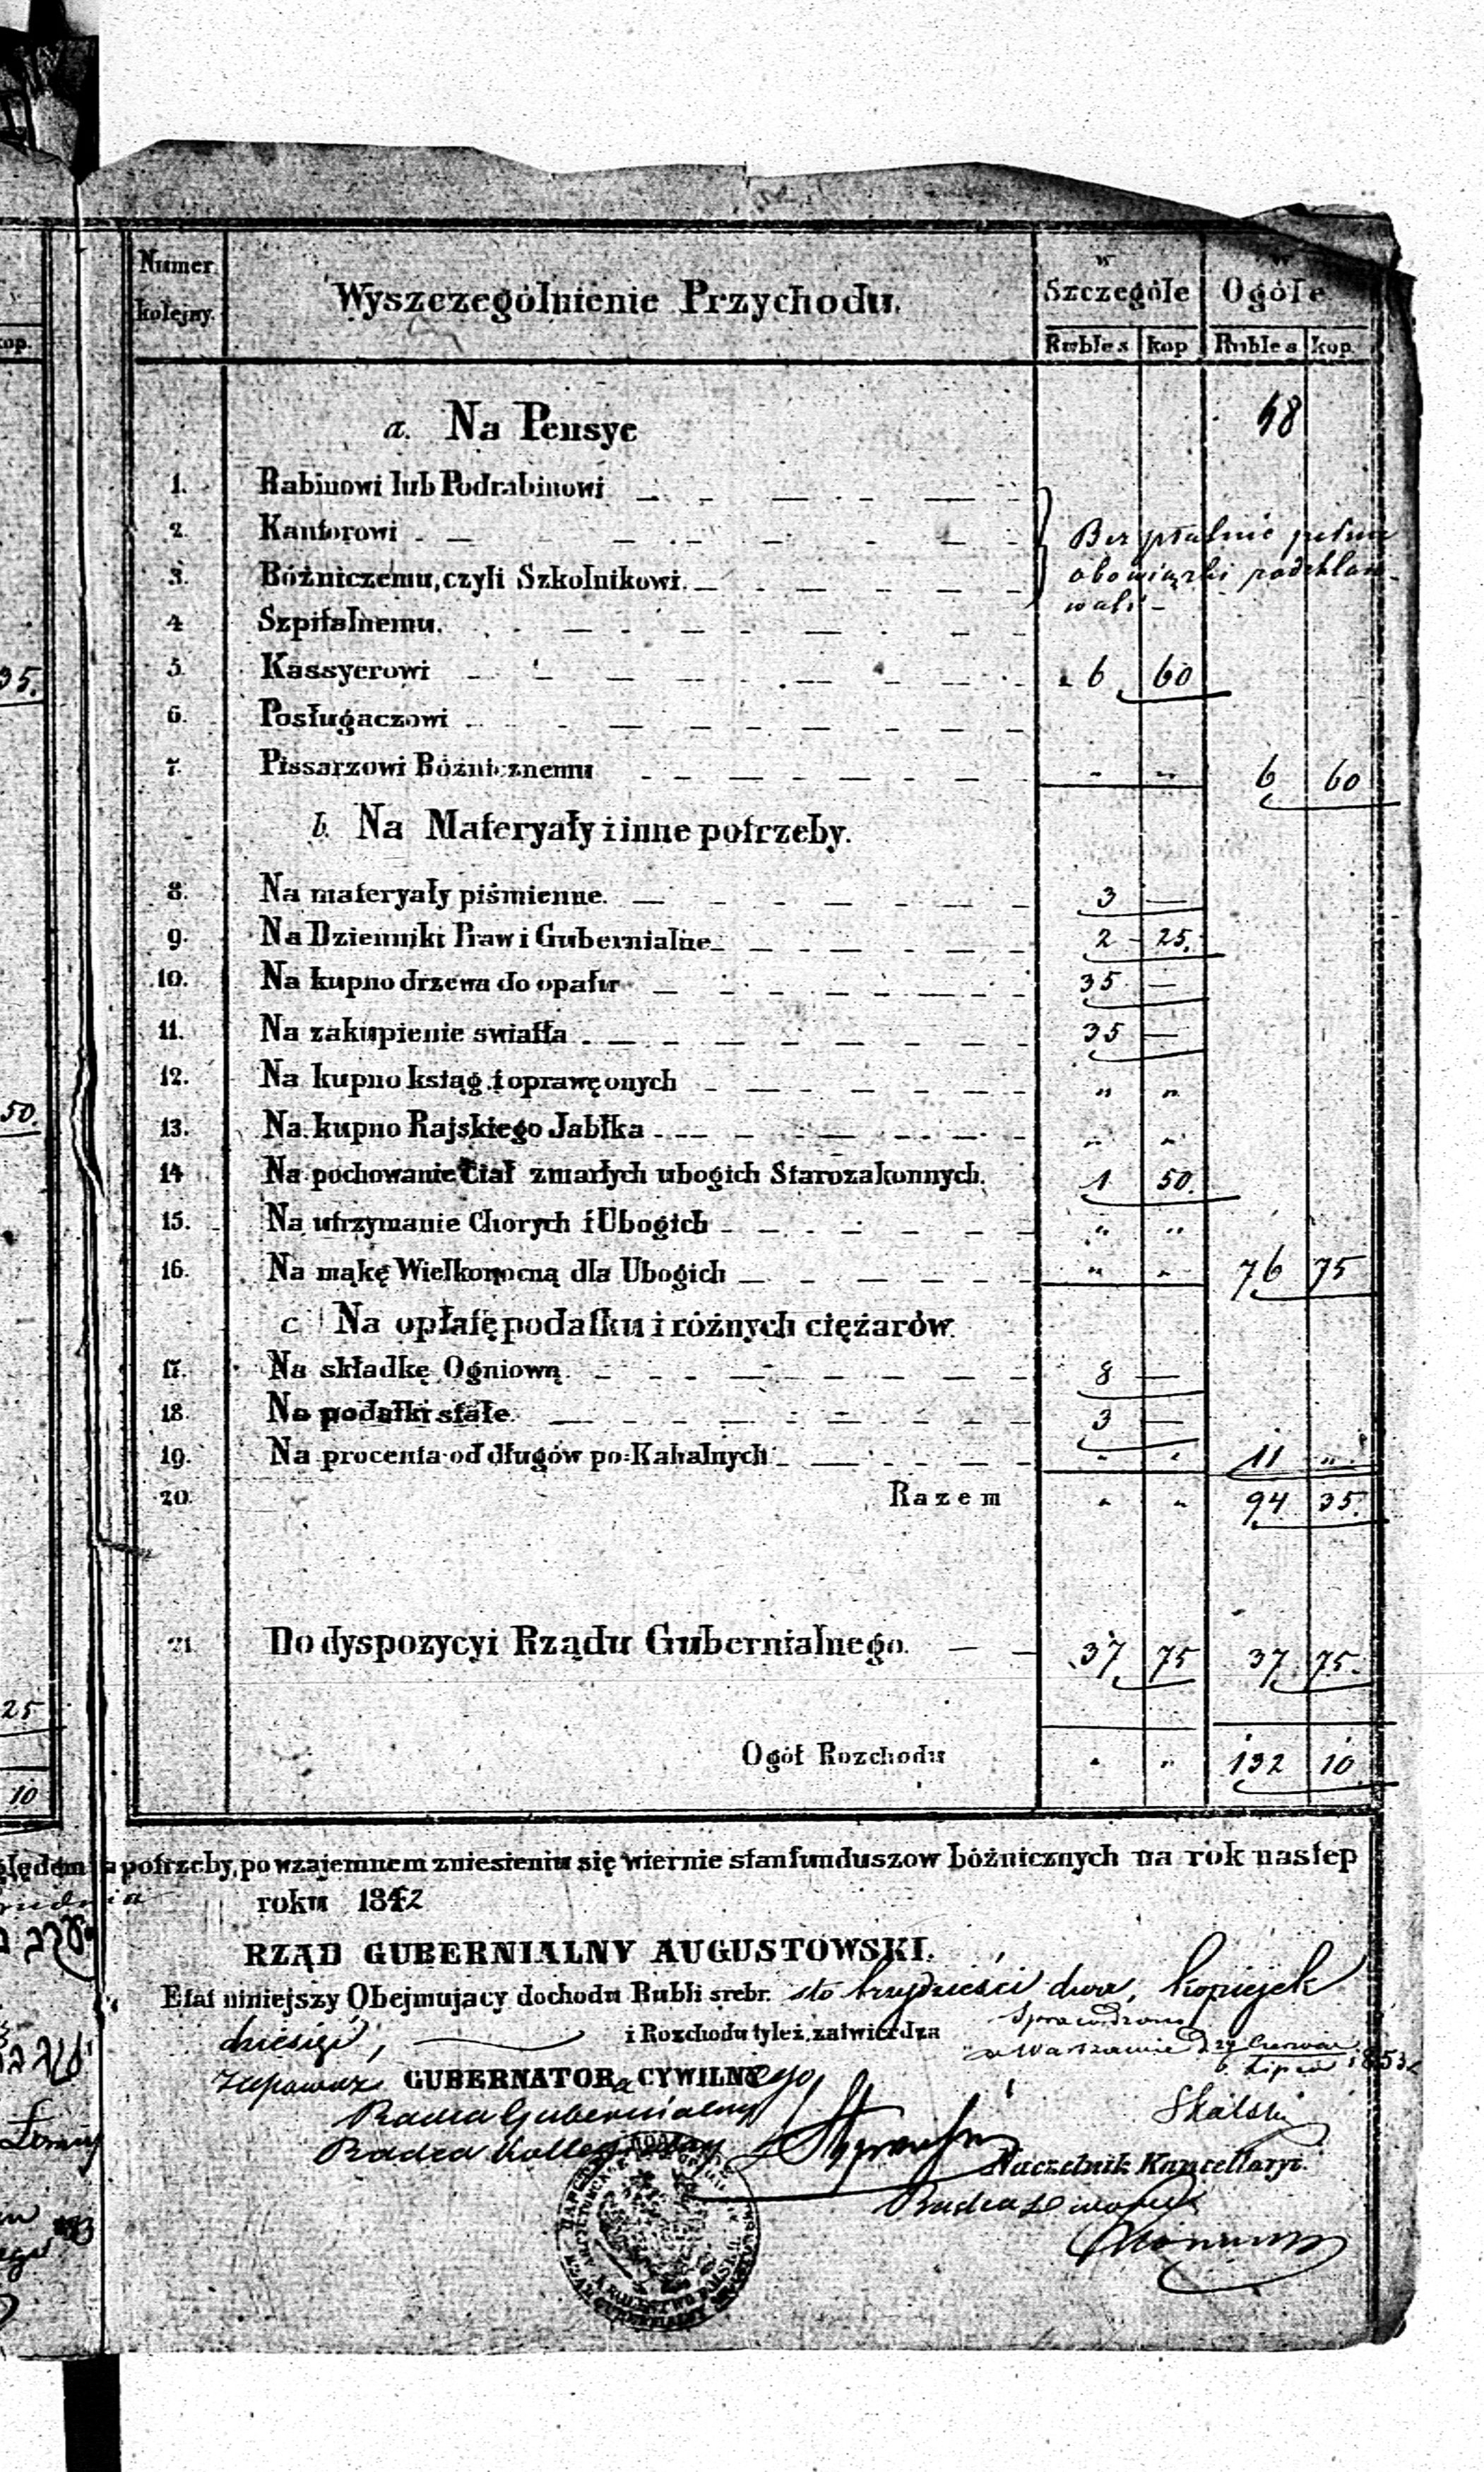 Numer kolejny.
Wyszczególnienie Przychodu.
w Szczególe
w Ogóle
Rubles kop Rubles kop.
a. Na Pensye
1. Rabinowi lub Podrabinowi
2. Kantorowi
3. Bóżniczemu, czyli Szkolnikowi.
Bezpłatnie
obowiązki
4 Szpitalnemu.
5. Kassyerowi 6 60
6. Posługaczowi
7. Pissarzowi Bóżnicznemu „ „ 6 60
b. Na Materyały i inne potrzeby.
8. Na materyały piśmienne. 3 —
9. Na Dzienniki Praw i Gubernialne 2 25.
10. Na kupno drzewa do opału 35 —
11. Na zakupienie swiatła 35 —
12. Na kupno ksiąg i oprawę onych „ „
13. Na kupno Rajskiego Jabłka „ „
14 Na pochowanie Ciał zmarłych ubogich Starozakonnych. 1 50.
15. Na utrzymanie Chorych i Ubogich „ „
16. Na mąkę Wielkonocną dla Ubogich „ „ 76 75
c Na opłatę podatku i różnych ciężarów.
17. Na składkę Ogniową 8 —
18. Na podatki stałe. 3 —
19. Na procenta od długów po-Kahalnych „ „ 11 „
20. Razem „ „ 94 35.
21. Do dyspozycyi Rządu Gubernialnego. 37 75 37 75.
Ogół Rozchodu „ „ 132 10
potrzeby, po wzajemnem zniesieniu się wiernie stan funduszow bóżnicznych na rok nastep
roku 1842
RZĄD GUBERNIALNY AUGUSTOWSKI.
Etat niniejszy Obejmujący dochodu Rubli srebr. sto trzydzieści dwa, kopiejek
dziesięć, i Rozchodu tyleż, zatwierdza
Sprawdzono
w Warszawie
GUBERNATORA CYWILNEGO
Radca Gubernialny
Skalski
Naczelnik Kancellaryi.
35.
50.
25
10